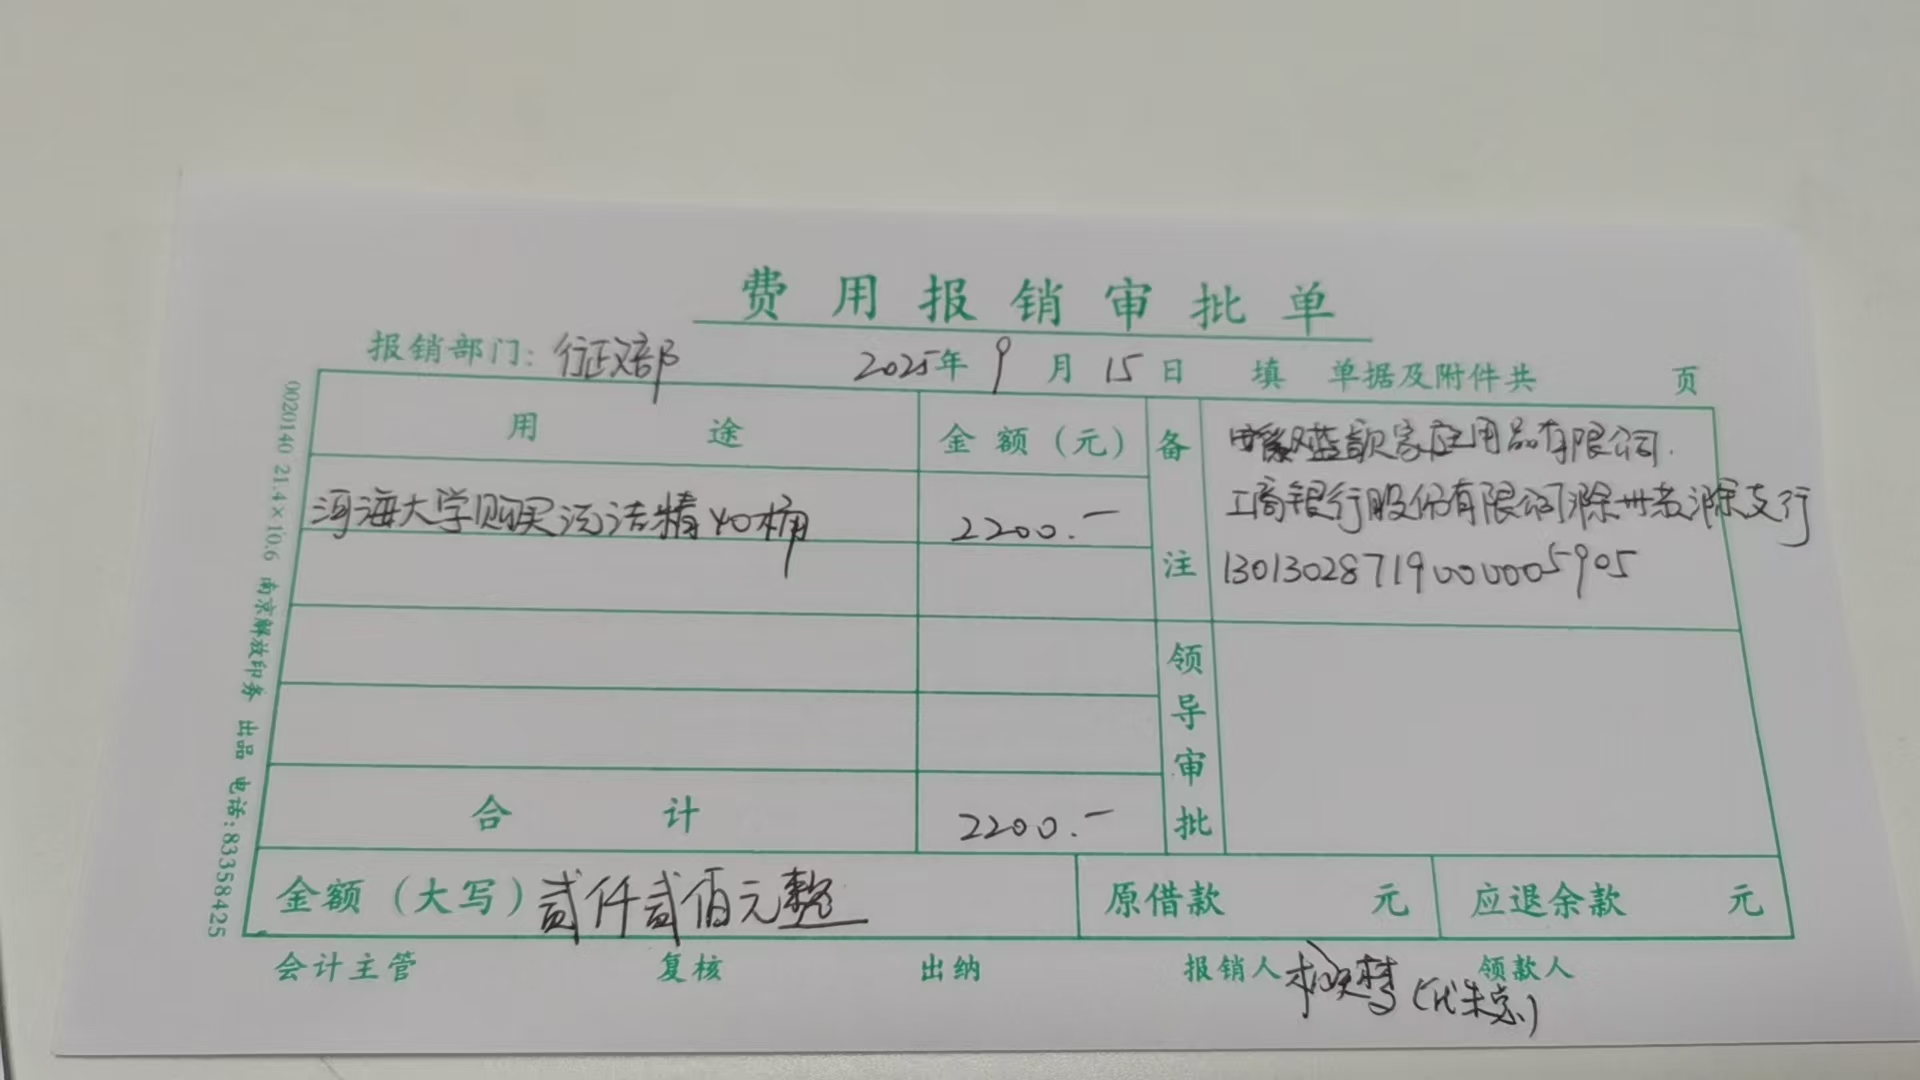 费用报销审批单
报销部门: 行政部 2025年 9月 15日 填 单据及附件共 页
用途 金额(元) 备注
河海大学购买洗洁精40桶 2200.-
蓝韵家庭用品有限公司.
工商银行股份有限公司滁州老滁支行
13013028719000005905
领导审批
合计 2200.-
金额(大写) 贰仟贰佰元整 原借款 元 应退余款 元
会计主管 复核 出纳 报销人 领款人
(代朱总)
0020140 21.4×10.6 南京解放印务 出品 电话:83358425